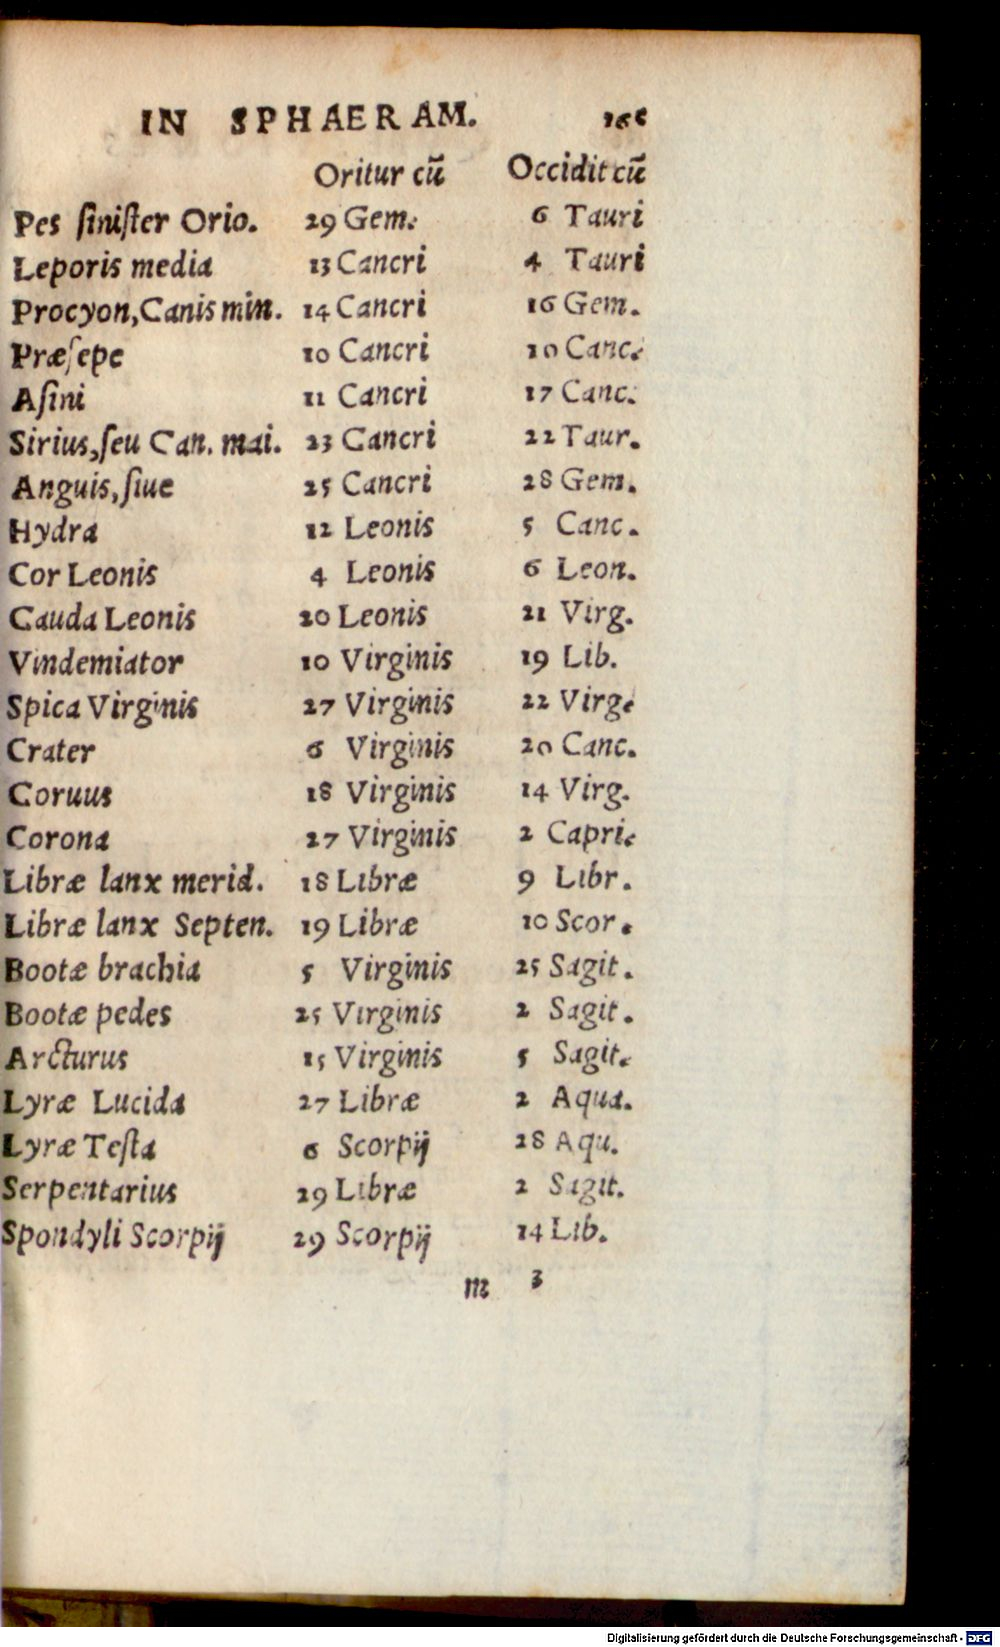 IN SPHAERAM.
Oritur cū Occidit cū
Pes ſiniſter Orio. 29 Gem. 6 Tauri
Leporis media 13 Cancri 4 Tauri
Procyon, Canis min. 14 Cancri 16 Gem.
Præſepe 10 Cancri 10 Canc.
Aſini 11 Cancri 17 Canc.
Sirius, ſeu Can. mai. 23 Cancri 22 Taur.
Anguis, ſiue 25 Cancri 28 Gem.
Hydra 12 Leonis 5 Canc.
Cor Leonis 4 Leonis 6 Leon.
Cauda Leonis 20 Leonis 21 Virg.
Vindemiator 10 Virginis 19 Lib.
Spica Virginis 27 Virginis 22 Virg.
Crater 6 Virginis 20 Canc.
Coruus 18 Virginis 14 Virg.
Corona 27 Virginis 2 Capri.
Libræ lanx merid. 18 Libræ 9 Libr.
Libræ lanx Septen. 19 Libræ 10 Scor.
Bootæ brachia 5 Virginis 25 Sagit.
Bootæ pedes 25 Virginis 2 Sagit.
Arcturus 15 Virginis 5 Sagit.
Lyræ Lucida 27 Libræ 2 Aqua.
Lyræ Teſta 6 Scorpij 28 Aqu.
Serpentarius 29 Libræ 2 Sagit.
Spondyli Scorpij 29 Scorpij 14 Lib.
m 3
Digitalisierung gefördert durch die Deutsche Forschungsgemeinschaft - DFG